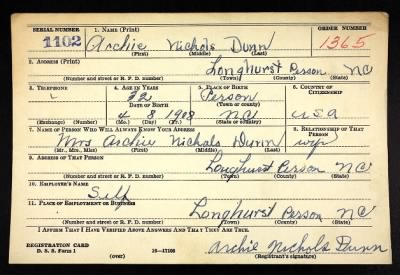 SERIAL NUMBER 1. NAME (Print) ORDER NUMBER
1102 Archie Nichols Dunn 1365
(First) (Middle) (Last)
2. ADDRESS (Print)
Longhurst Person NC
(Number and street or R. F. D. number) (Town) (County) (State)
3. TELEPHONE 4. AGE IN YEARS 5. PLACE OF BIRTH 6. COUNTRY OF CITIZENSHIP
32 Person
DATE OF BIRTH (Town or county)
4 8 1908 NC USA
(Exchange) (Number) (Mo.) (Day) (Yr.) (State or country)
7. NAME OF PERSON WHO WILL ALWAYS KNOW YOUR ADDRESS 8. RELATIONSHIP OF THAT PERSON
Mrs Archie Nichols Dunn wife
(Mr., Mrs., Miss) (First) (Middle) (Last)
9. ADDRESS OF THAT PERSON
Longhurst Person NC
(Number and street or R. F. D. number) (Town) (County) (State)
10. EMPLOYER'S NAME
Self
11. PLACE OF EMPLOYMENT OR BUSINESS
Longhurst Person NC
(Number and street or R. F. D. number) (Town) (County) (State)
I AFFIRM THAT I HAVE VERIFIED ABOVE ANSWERS AND THAT THEY ARE TRUE.
REGISTRATION CARD
D. S. S. Form 1 16—17105 Archie Nichols Dunn
(over) (Registrant's signature)